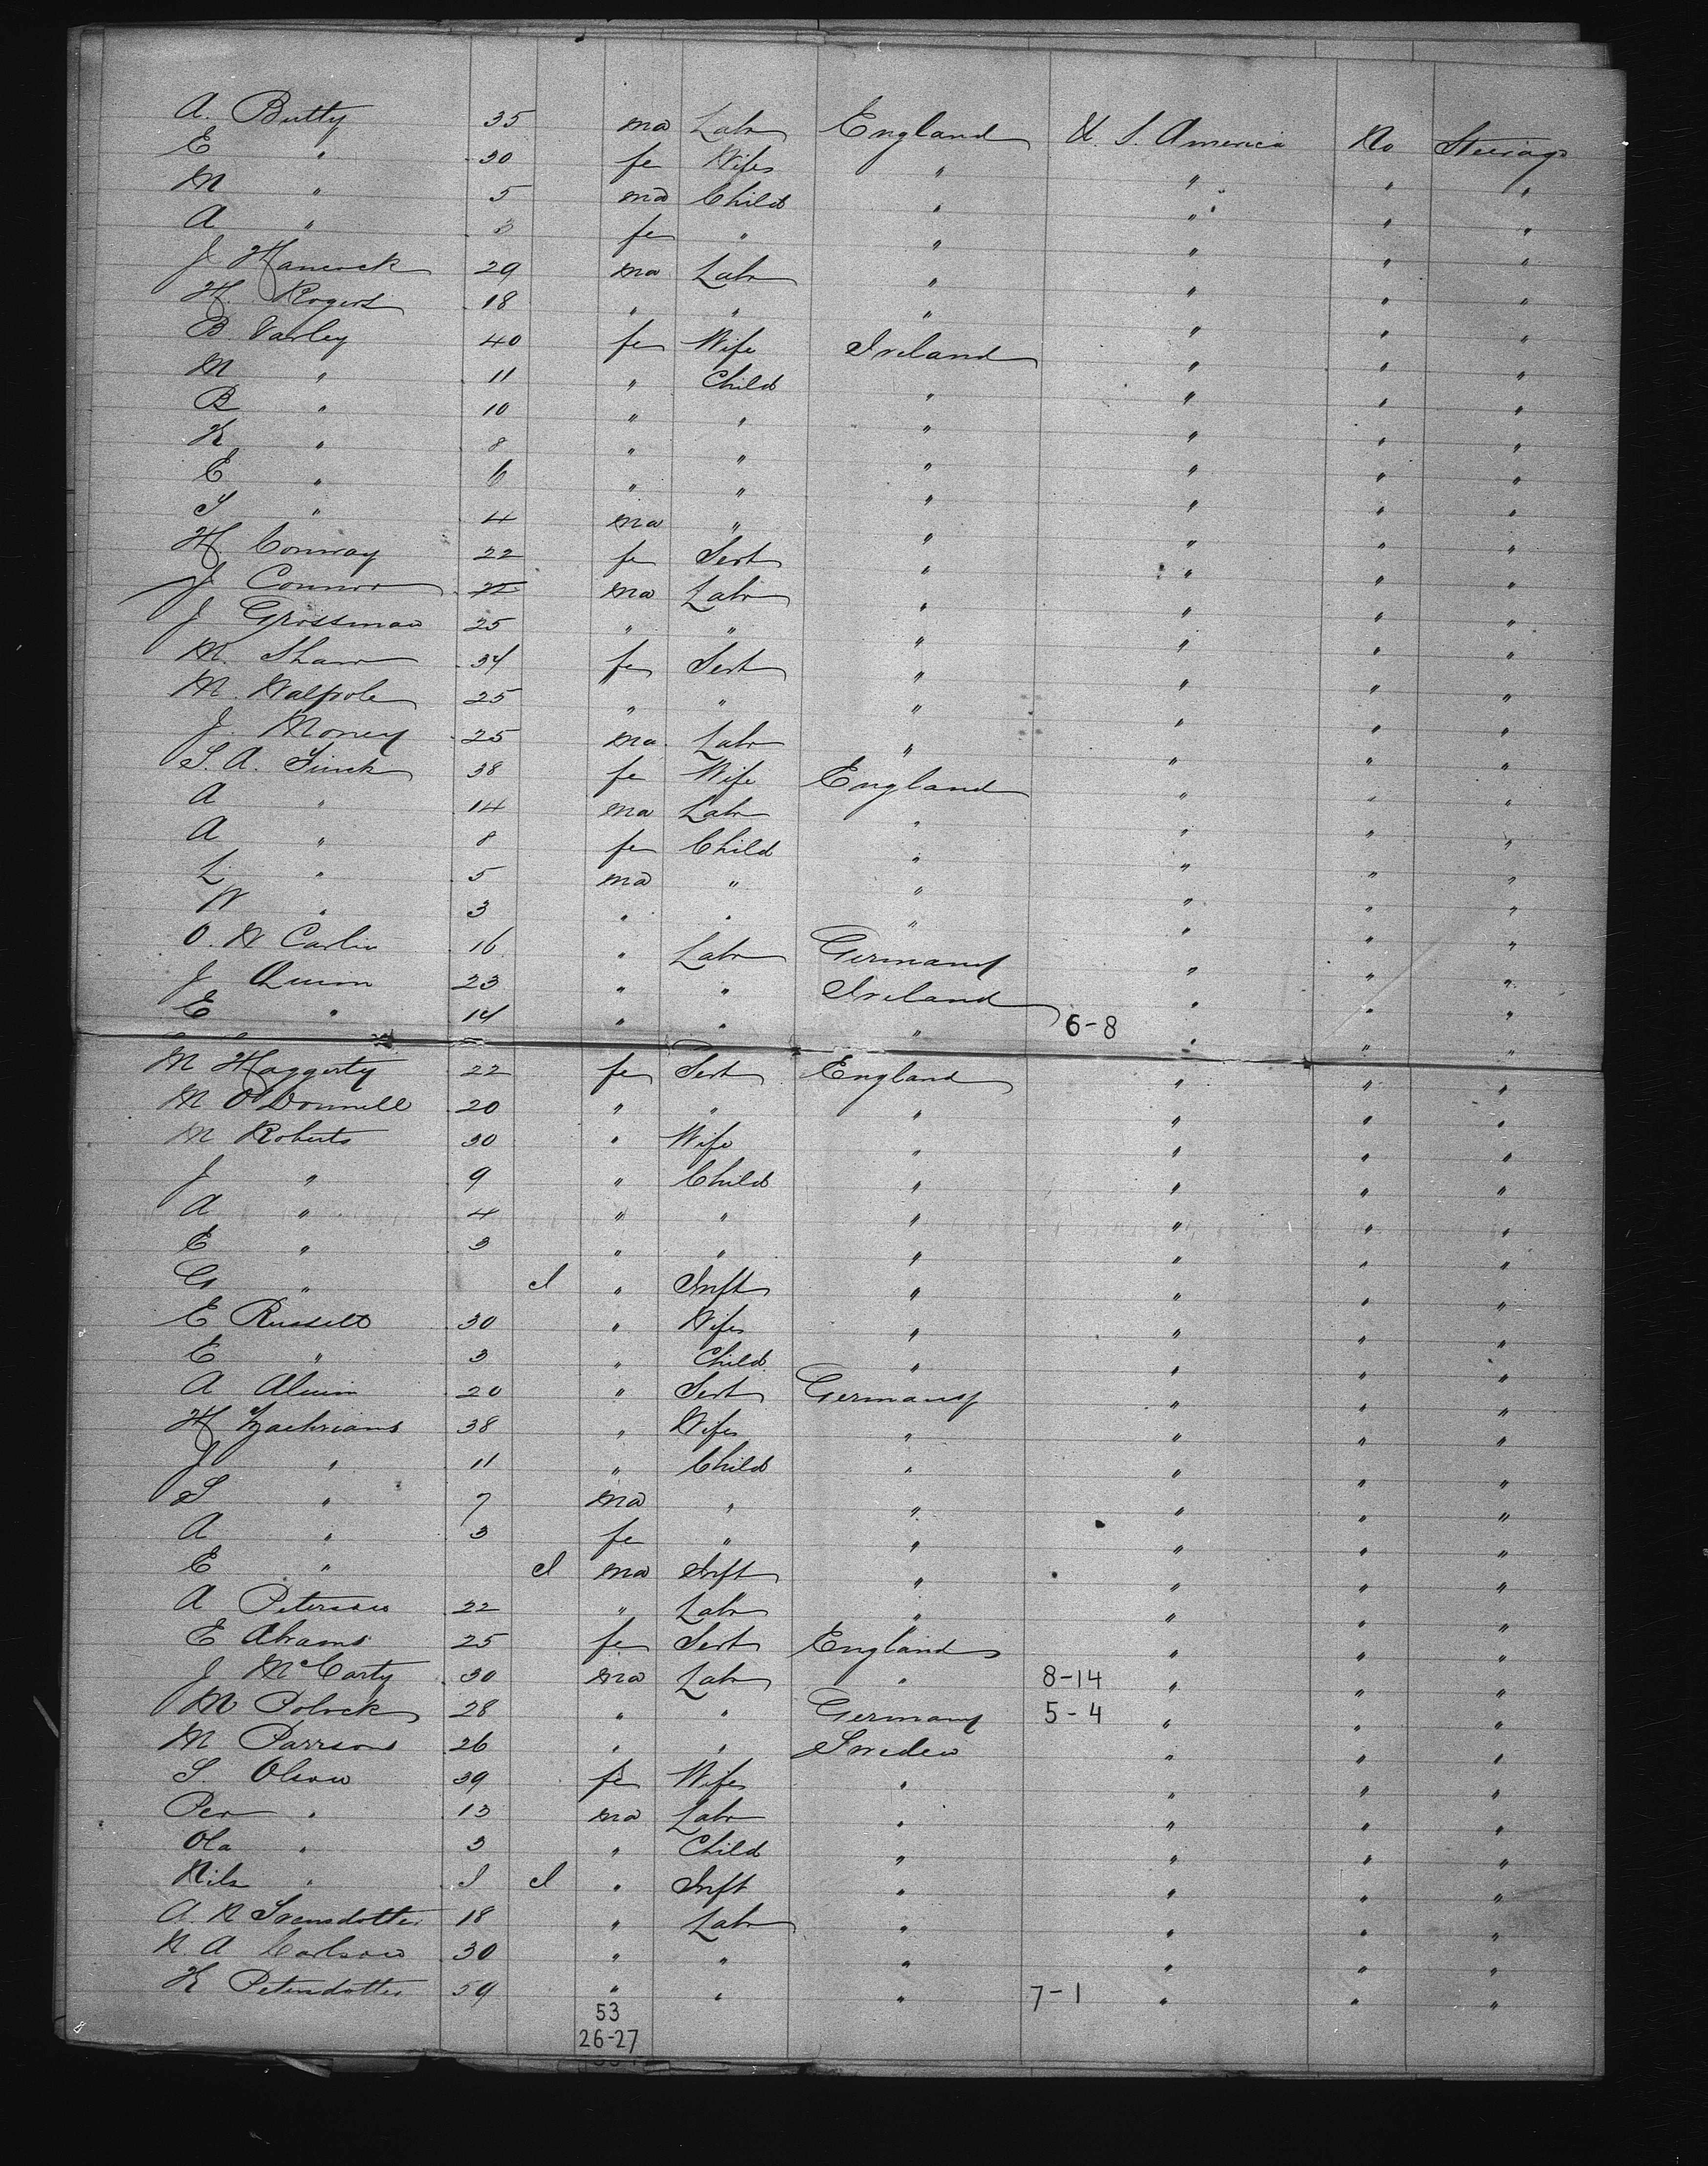 A. Butty 35 ma Labr England U. S. America No Steerage
E " 30 fe Wife " " " "
M " 5 ma Child " " " "
A " 3 fe " " " " "
J Hancock 29 ma Labr " " " "
H. Rogers 18 " " " " " "
B. Varley 40 fe Wife Ireland " " "
M " 11 " Child " " " "
B " 10 " " " " " "
K " 8 " " " " " "
E " 6 " " " " " "
S " 4 ma " " " " "
H. Conway 22 fe Sert " " " "
J Connor 22 ma Labr " " " "
J Grossman 25 " " " " " "
M. Shaw 34 fe Sert " " " "
M. Walpole 25 " " " " " "
J. Money 25 ma Labr " " " "
S. A. Finck 38 fe Wife England " " "
A " 14 ma Labr " " " "
A " 8 fe Child " " " "
L " 5 ma " " " " "
W " 3 " " " " " "
O. W Carlin 16 " Labr Germany " " "
J Quinn 23 " " Ireland " " "
E " 14 " " " 6-8 " " "
M Haggerty 22 fe Sert England " " "
M O'Donnell 20 " " " " " "
M Roberts 30 " Wife " " " "
J " 9 " Child " " " "
A " 4 " " " " " "
E " 3 " " " " " "
G " I " Inft " " " "
E Russell 30 " Wife " " " "
E " 3 " Child " " " "
A 20 " Sert Germany " " "
H 38 " Wife " " " "
J " 11 " Child " " " "
S " 7 ma " " " " "
A " 3 fe " " " " "
E " I ma Inft " " " "
A Peterson 22 " Labr " " " "
E Abrams 25 fe Sert England " " "
J McCarty 30 ma Labr " 8-14 " " "
M Polock 28 " " Germany 5-4 " " "
M Parrsons 26 " " Sweden " " "
S. Olson 39 fe Wife " " " "
Per " 13 ma Labr " " " "
Ola " 3 " Child " " " "
Nils " I I " Inft " " " "
A. N Svensdotter 18 " Labr " " " "
N. A Carlson 30 " " " " " "
K Petersdotter 59 " " " 7-1 " " "
53
26-27
8